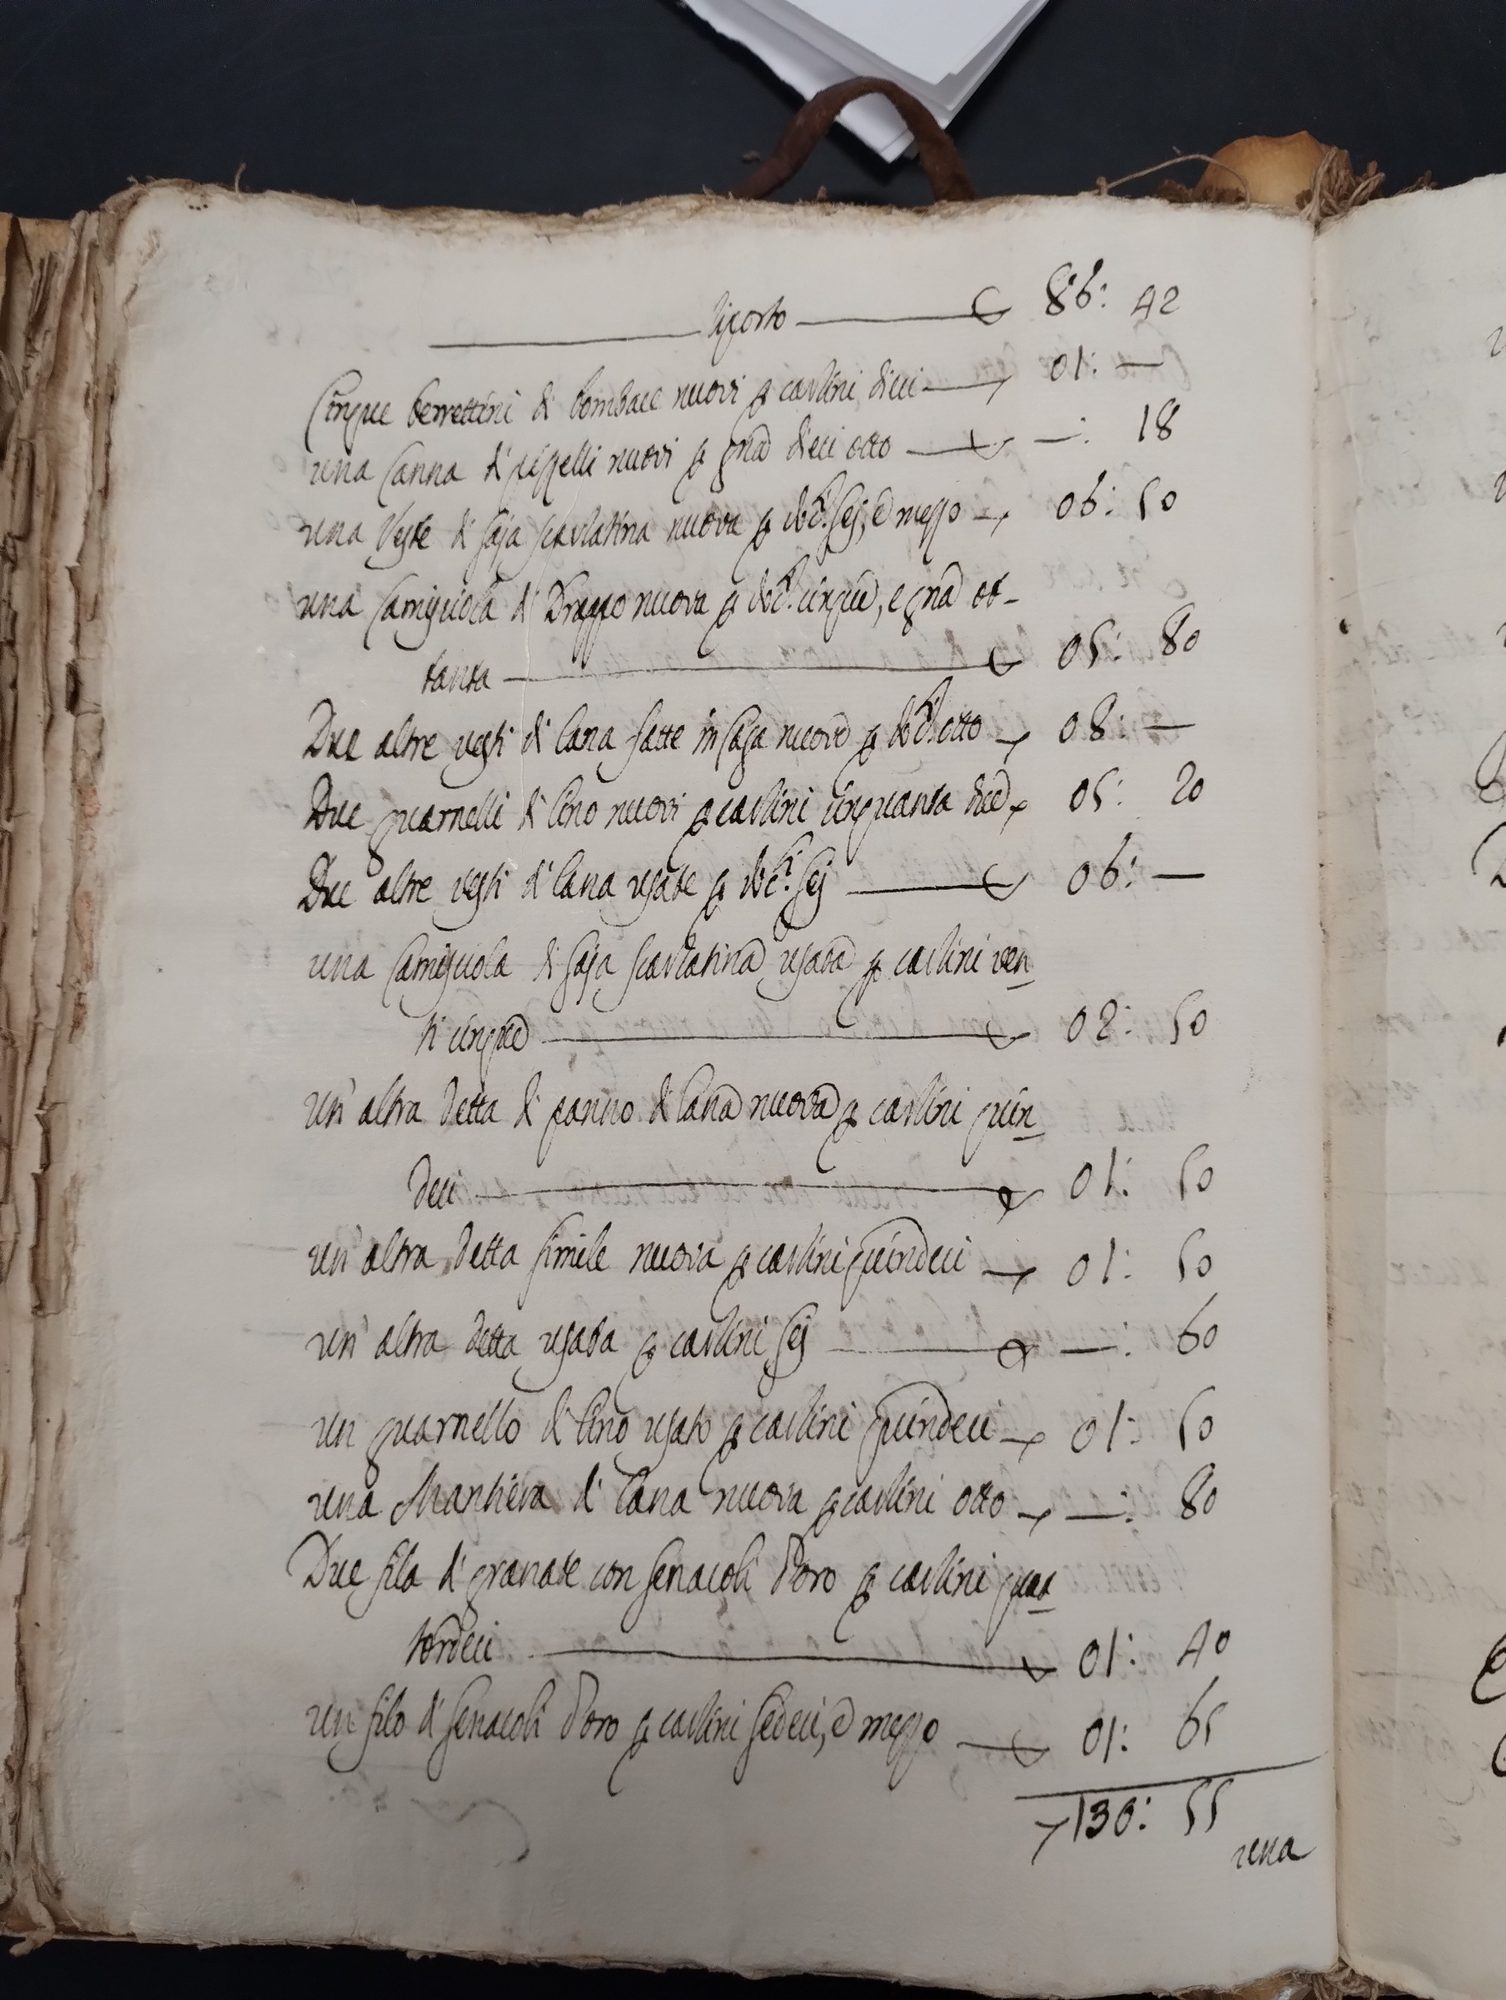 Riporto 86: 42
Cinque berrettini di bombace nuovi p carlini dieci 01: —
una canna di pizzelli nuovi p gna dieci otto —: 18
una veste di saja scarlatina nuova p doc.ti sej, e mezzo 06: 50
una camiguola di Drappo nuova p doc.ti cinque, e gna ot-
tanta 05: 80
Due altre vesti di lana fatte in casa nuove p doc.ti otto 08: —
Due guarnelli di lino nuovi p carlini cinquanta due 05: 20
Due altre vesti di lana usate p doc.ti sej 06: —
una camiguola di saja scarlatina usata p carlini ven
ti cinque 02: 50
un' altra detta di panno di lana nuova p carlini quin
deci 01: 50
un' altra detta simile nuova p carlini quindeci 01: 50
un' altra detta usata p carlini sej —: 60
un guarnello di lino usato p carlini quindeci 01: 50
una Mantiera di lana nuova p carlini otto —: 80
Due fila di granate con senacoli d'oro p carlini quat
tordeci 01: 40
un filo di senacoli d'oro p carlini sedeci, e mezzo 01: 65
130: 55
una